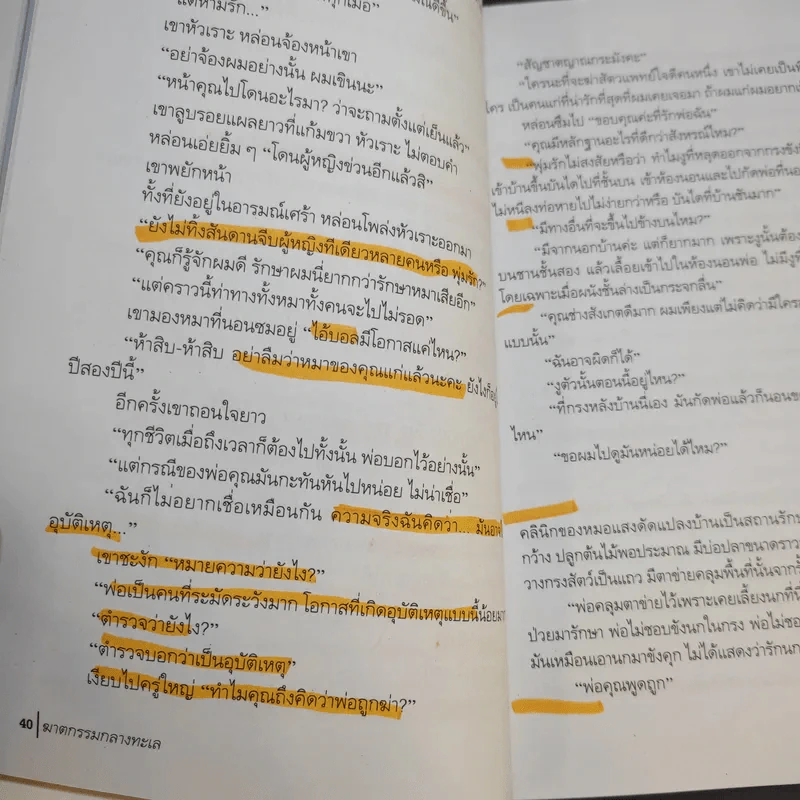 แต่ห้ามรัก...”
เขาหัวเราะ หล่อนจ้องหน้าเขา
“อย่าจ้องผมอย่างนั้น ผมเขินนะ”
“หน้าคุณไปโดนอะไรมา? ว่าจะถามตั้งแต่เย็นแล้ว”
เขาลูบรอยแผลยาวที่แก้มขวา หัวเราะ ไม่ตอบคำ
หล่อนเอ่ยยิ้ม ๆ “โดนผู้หญิงข่วนอีกแล้วสิ”
เขาพยักหน้า
ทั้งที่ยังอยู่ในอารมณ์เศร้า หล่อนโพล่งหัวเราะออกมา
“ยังไม่ทิ้งสันดานจีบผู้หญิงทีเดียวหลายคนหรือ พุ่มรัก?”
“คุณก็รู้จักผมดี รักษาผมนี่ยากกว่ารักษาหมาเสียอีก”
“แต่คราวนี้ท่าทางทั้งหมาทั้งคนจะไปไม่รอด”
เขามองหมาที่นอนซมอยู่ “ไอ้บอลมีโอกาสแค่ไหน?”
“ห้าสิบ-ห้าสิบ อย่าลืมว่าหมาของคุณแก่แล้วนะคะ ยังไงก็อยู่
ปีสองปีนี้”
อีกครั้งเขาถอนใจยาว
“ทุกชีวิตเมื่อถึงเวลาก็ต้องไปทั้งนั้น พ่อบอกไว้อย่างนั้น”
“แต่กรณีของพ่อคุณมันกะทันหันไปหน่อย ไม่น่าเชื่อ”
“ฉันก็ไม่อยากเชื่อเหมือนกัน ความจริงฉันคิดว่า... มันอาจ
อุบัติเหตุ...”
เขาชะงัก “หมายความว่ายังไง?”
“พ่อเป็นคนที่ระมัดระวังมาก โอกาสที่เกิดอุบัติเหตุแบบนี้น้อยมาก
“ตำรวจว่ายังไง?”
“ตำรวจบอกว่าเป็นอุบัติเหตุ”
เงียบไปครู่ใหญ่ “ทำไมคุณถึงคิดว่าพ่อถูกฆ่า?”
40 | ฆาตกรรมกลางทะเล
“สัญชาตญาณกระมังคะ”
“ใครนะที่จะฆ่าสัตวแพทย์ใจดีคนหนึ่ง เขาไม่เคยเป็น
ใคร เป็นคนแก่ที่น่ารักที่สุดที่ผมเคยเจอมา ถ้าผมแก่ผมอยาก
หล่อนซึมไป “ขอบคุณค่ะที่รักพ่อฉัน”
“คุณมีหลักฐานอะไรที่ดีกว่าสังหรณ์ไหม?”
“พุ่มรักไม่สงสัยหรือว่า ทำไมงูที่หลุดออกจากกรงขัง
เข้าบ้านขึ้นบันไดไปที่ชั้นบน เข้าห้องนอนและไปกัดพ่อที่นอน
ไม่หนีลงท่อหายไปไม่ง่ายกว่าหรือ บันไดที่บ้านชันมาก”
“มีทางอื่นที่จะขึ้นไปข้างบนไหม?”
“มีจากนอกบ้านค่ะ แต่ก็ยากมาก เพราะงูนั้นต้อง
บนชานชั้นสอง แล้วเลื้อยเข้าไปในห้องนอนพ่อ ไม่มีงูที่
โดยเฉพาะเมื่อผนังชั้นล่างเป็นกระจกลื่น”
“คุณช่างสังเกตดีมาก ผมเพียงแต่ไม่คิดว่ามีใคร
แบบนั้น”
“ฉันอาจผิดก็ได้”
“งูตัวนั้นตอนนี้อยู่ไหน?”
“ที่กรงหลังบ้านนี่เอง มันกัดพ่อแล้วก็นอนขด
ไหน”
“ขอผมไปดูมันหน่อยได้ไหม?”
คลินิกของหมอแสงดัดแปลงบ้านเป็นสถานรักษา
กว้าง ปลูกต้นไม้พอประมาณ มีบ่อปลาขนาดราว
วางกรงสัตว์เป็นแถว มีตาข่ายคลุมพื้นที่นั้นจาก
“พ่อคลุมตาข่ายไว้เพราะเคยเลี้ยงนกที่
ป่วยมารักษา พ่อไม่ชอบขังนกในกรง พ่อไม่ชอบ
มันเหมือนเอานกมาขังคุก ไม่ได้แสดงว่ารักนก
“พ่อคุณพูดถูก”